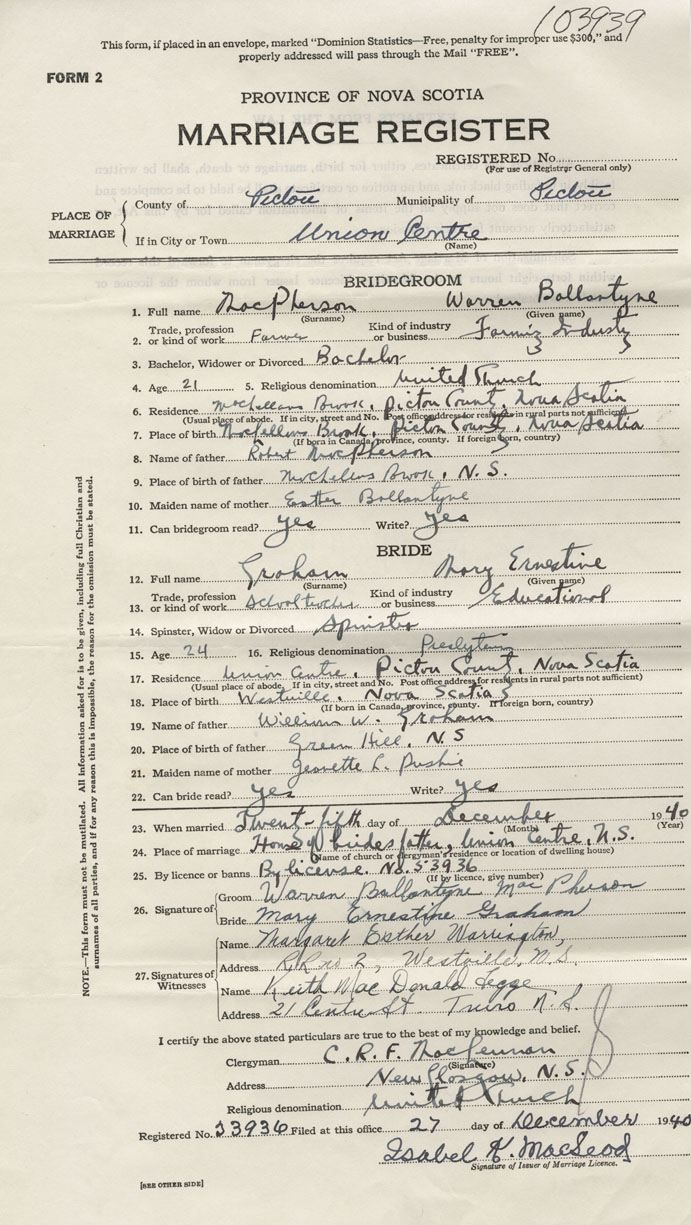 103939
This form, if placed in an envelope, marked "Dominion Statistics—Free, penalty for improper use $300," and
properly addressed will pass through the Mail "FREE".
FORM 2
PROVINCE OF NOVA SCOTIA
MARRIAGE REGISTER
REGISTERED No.
(For use of Registrar General only)
PLACE OF MARRIAGE
County of Pictou Municipality of Pictou
If in City or Town Union Centre
(Name)
BRIDEGROOM
1. Full name MacPherson Warren Ballantyne
(Surname) (Given name)
2. Trade, profession or kind of work Farmer Kind of industry or business Farming Industry
3. Bachelor, Widower or Divorced Bachelor
4. Age 21 5. Religious denomination United Church
6. Residence McLellans Brook, Pictou County, Nova Scotia
(Usual place of abode. If in city, street and No. Post office address for residents in rural parts not sufficient)
7. Place of birth McLellans Brook, Pictou County, Nova Scotia
(If born in Canada, province, county. If foreign born, country)
8. Name of father Robert MacPherson
9. Place of birth of father McLellans Brook, N.S.
10. Maiden name of mother Esther Ballantyne
11. Can bridegroom read? yes Write? yes
BRIDE
12. Full name Graham Mary Ernestine
(Surname) (Given name)
13. Trade, profession or kind of work School teacher Kind of industry or business Educational
14. Spinster, Widow or Divorced Spinster
15. Age 24 16. Religious denomination Presbyterian
17. Residence Union Centre, Pictou County, Nova Scotia
(Usual place of abode. If in city, street and No. Post office address for residents in rural parts not sufficient)
18. Place of birth Westville, Nova Scotia
(If born in Canada, province, county. If foreign born, country)
19. Name of father William W. Graham
20. Place of birth of father Green Hill, N.S
21. Maiden name of mother Jeanette L.
22. Can bride read? yes Write? yes
23. When married Twenty-fifth day of December 1940
(Month) (Year)
24. Place of marriage Home of brides father, Union Centre, N.S.
(Name of church or clergyman's residence or location of dwelling house)
25. By licence or banns By license. No. 53936
(If by licence, give number)
26. Signature of
Groom Warren Ballantyne MacPherson
Bride Mary Ernestine Graham
27. Signatures of Witnesses
Name Margaret Esther Warrington,
Address R.R. no 2, Westville, N.S.
Name Keith MacDonald Legge
Address 21 Centre St. Truro N.S.
I certify the above stated particulars are true to the best of my knowledge and belief.
Clergyman C. R. F. MacLennan
(Signature)
Address New Glasgow, N.S.
Religious denomination United Church
Registered No. 53936 Filed at this office 27 day of December 1940
Isabel K. MacLeod
Signature of Issuer of Marriage Licence.
[SEE OTHER SIDE]
NOTE.—This form must not be mutilated. All information asked for is to be given, including full Christian and
surnames of all parties, and if for any reason this is impossible, the reason for the omission must be stated.